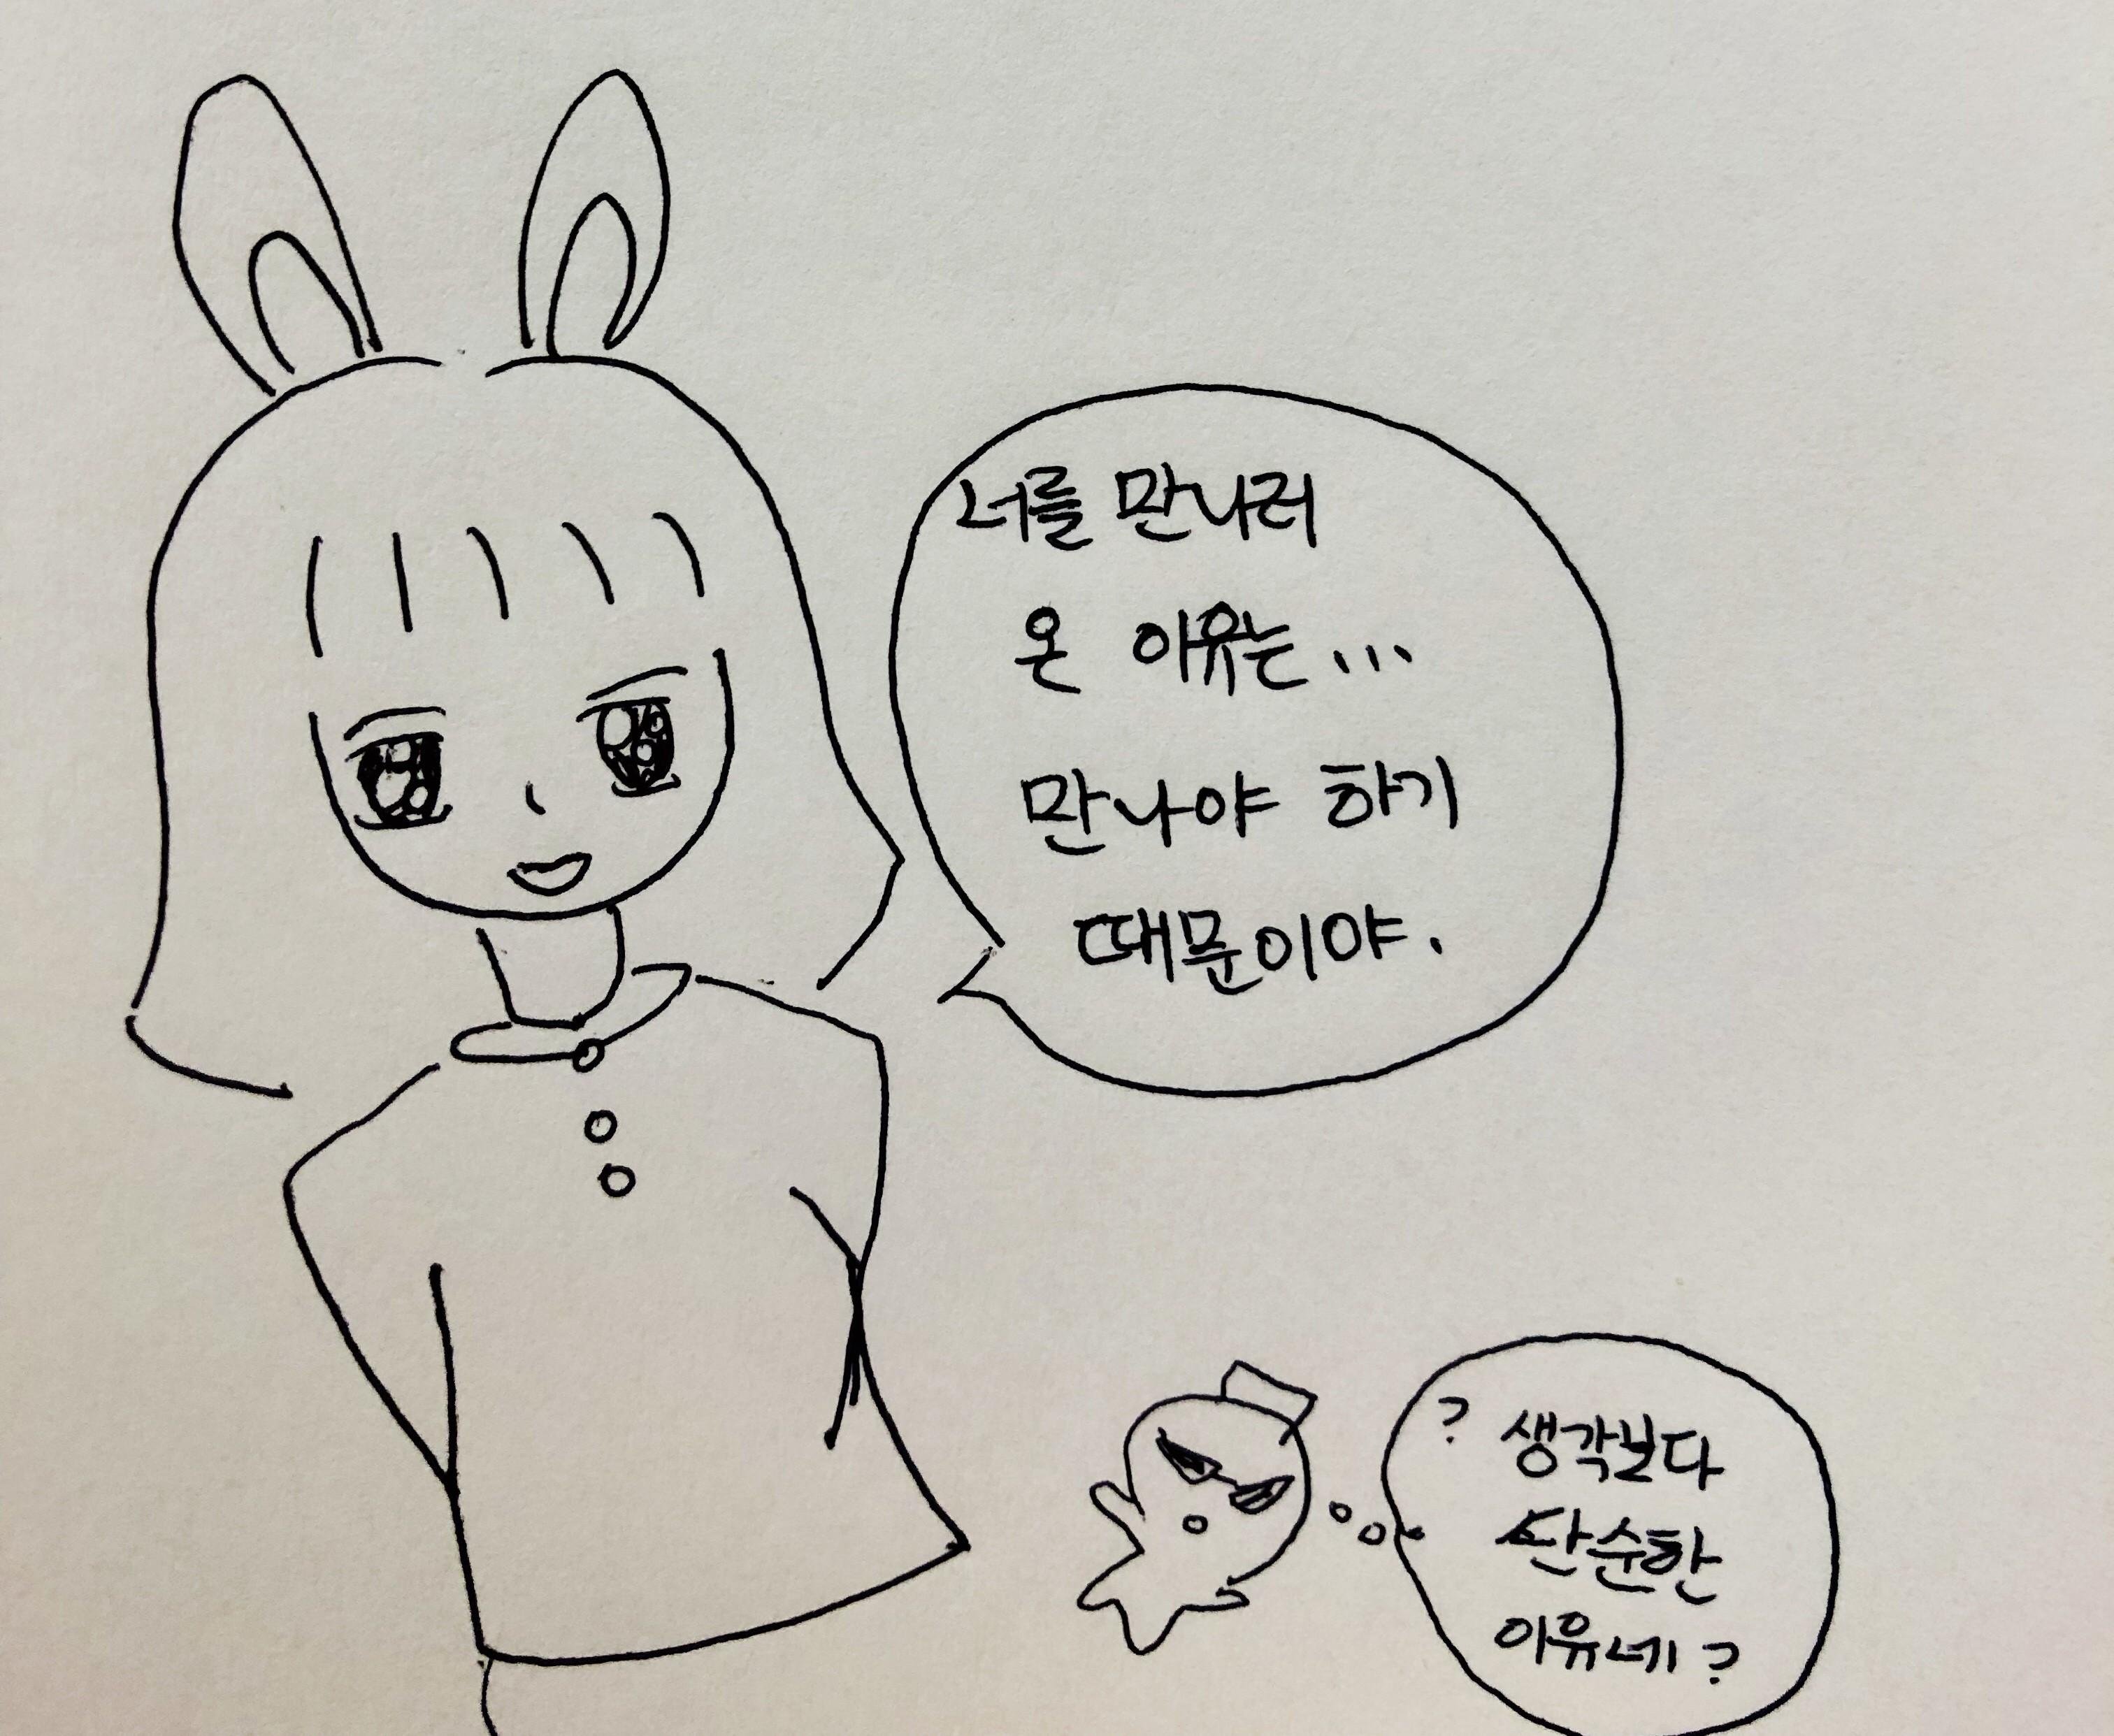 너를 만나러
온 이유는...
만나야 하기
때문이야.
? 생각보다
단순한
이유네?